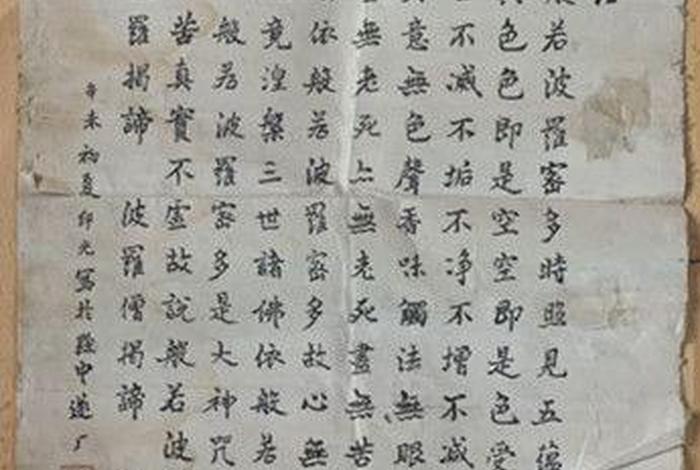 般若波羅密多時照見五蘊
色色即是空空即是色受
不滅不垢不净不增不减
意無色聲香味觸法無眼
無老死亠無老死盡無苦
依般若波羅密多故心無
竟湼槃三世諸佛依般若
般若波羅密多是大神咒
苦真實不虛故說般若波
羅揭諦 波羅僧揭諦
辛未初夏印光寫於中